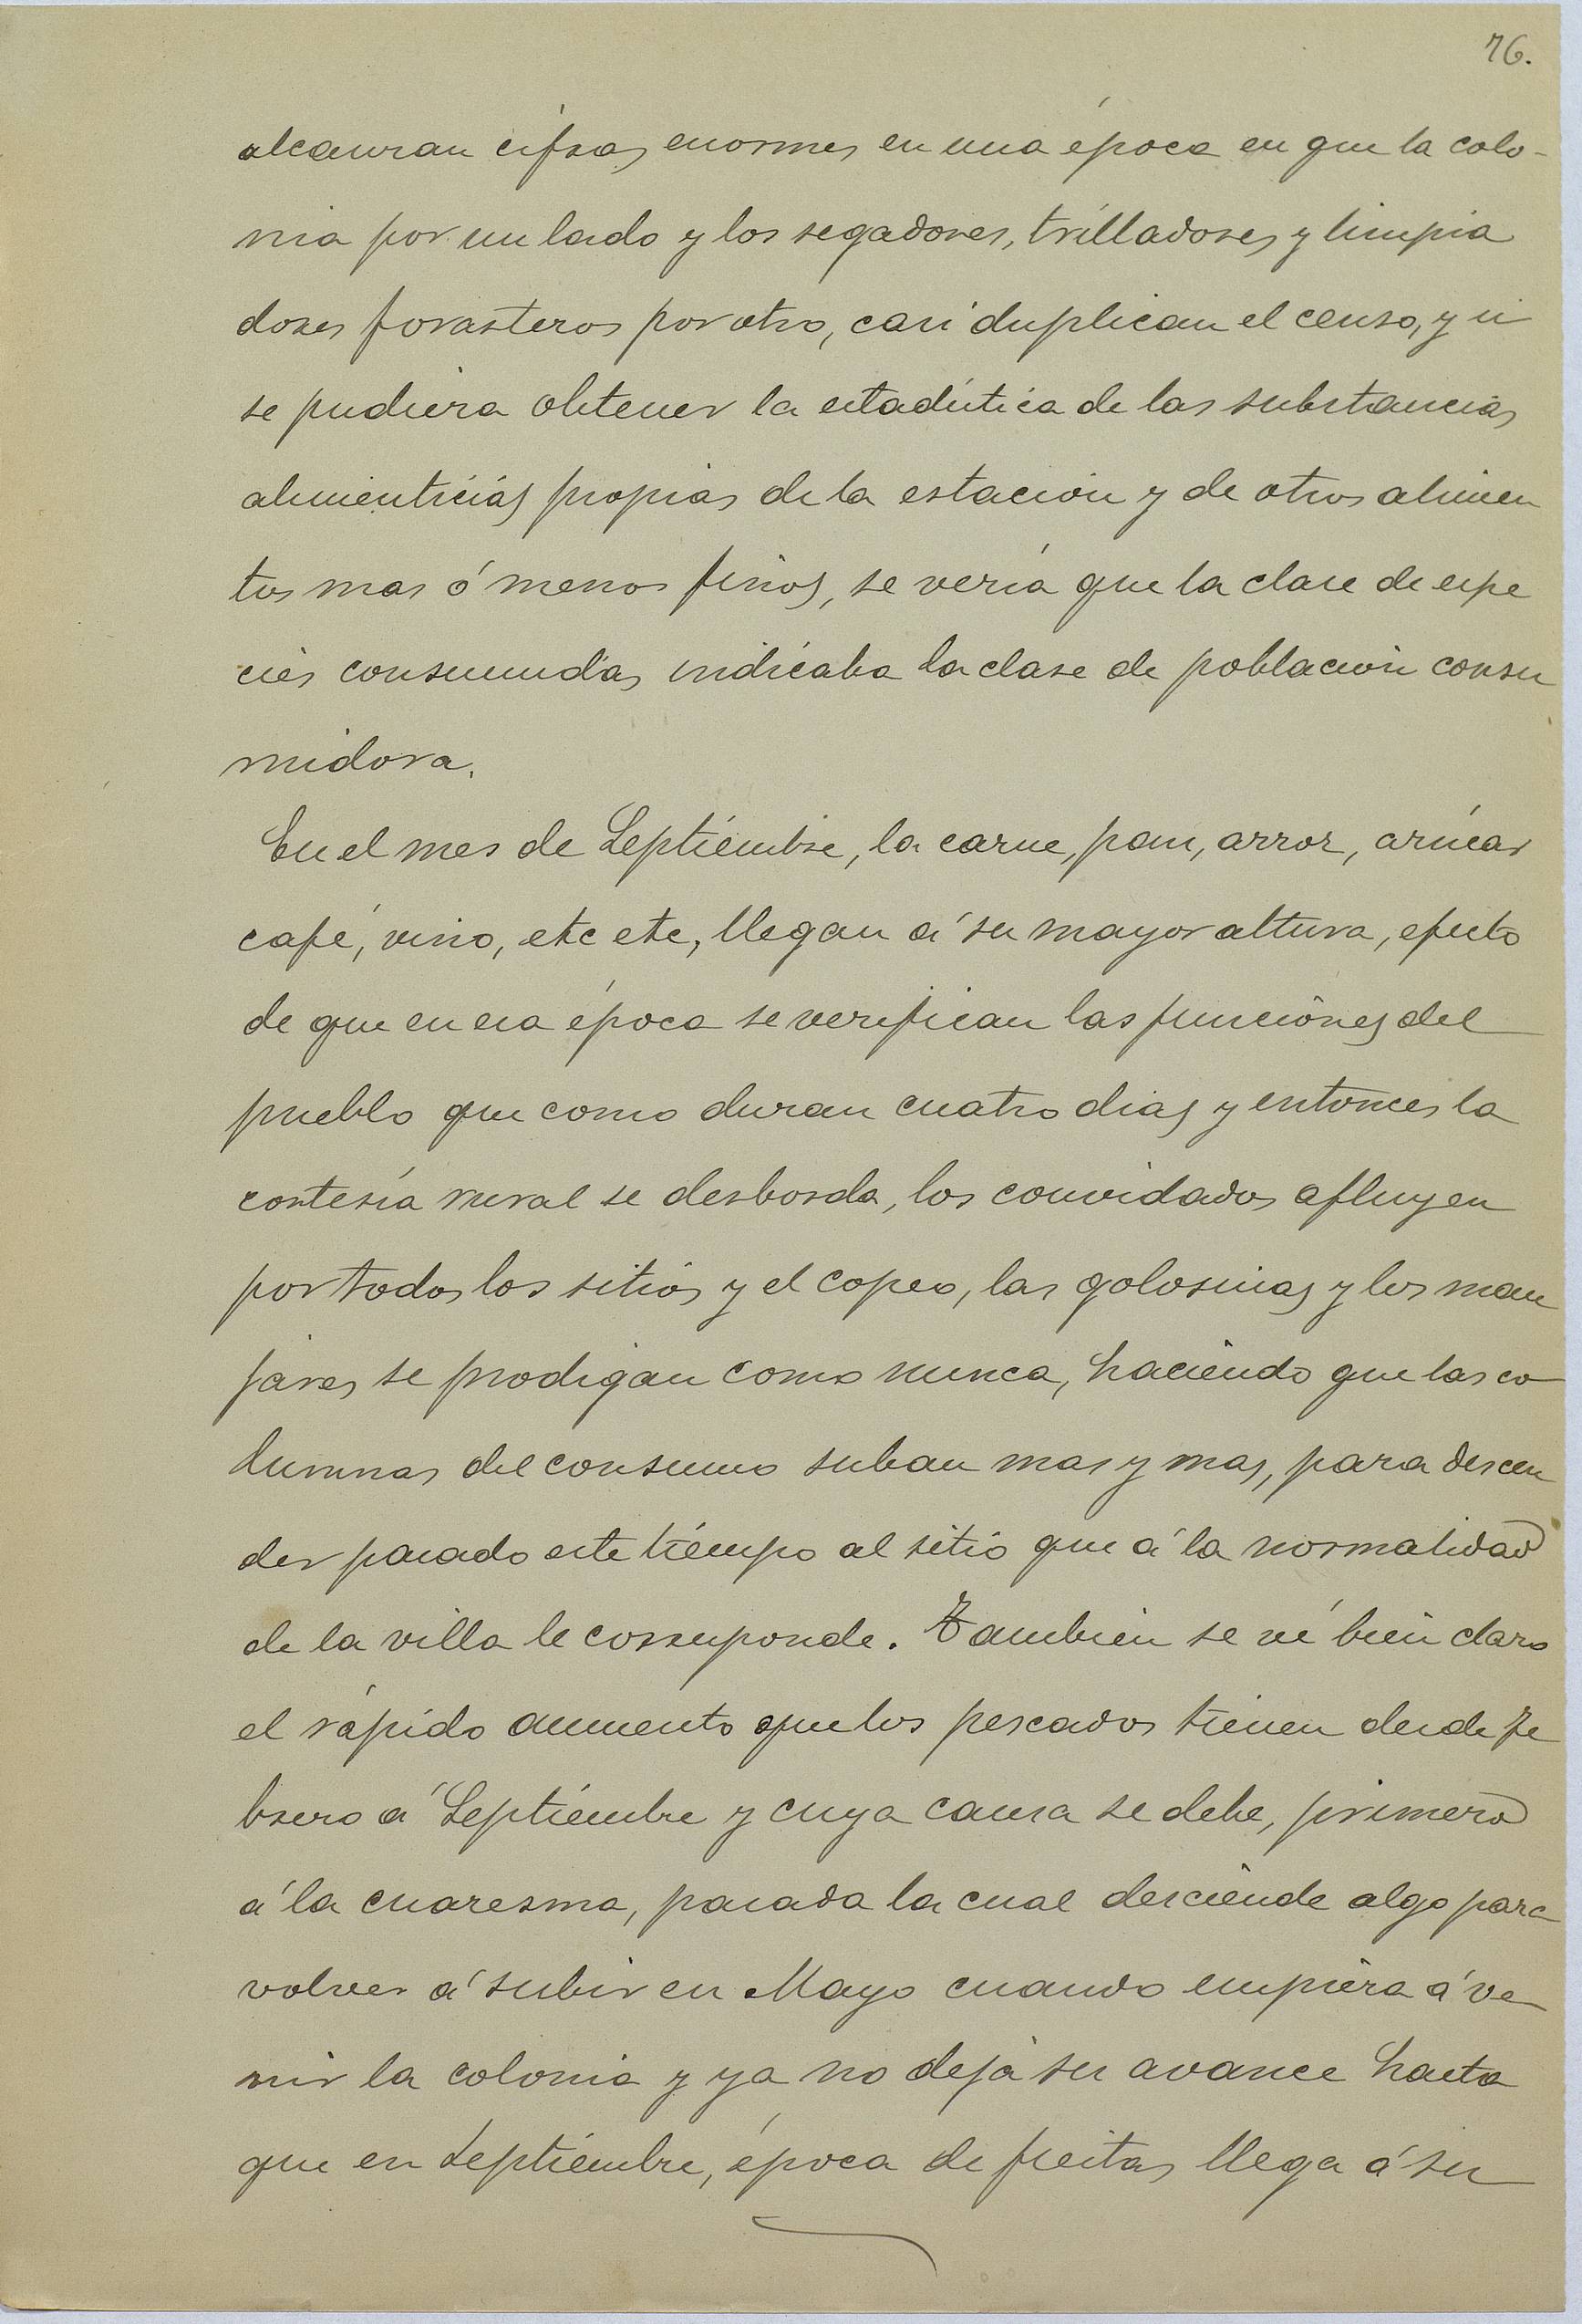 76.
alcanzan cifras enormes en una época en que la colo-
nia por un lado y los segadores, trilladores y limpia
dores forasteros por otro, casi duplican el censo, y si
se pudiera obtener la estadística de las substancias
alimenticias propias de la estación y de otros alimen
tos mas ó menos finos, se vería que la clase de espe
cies consumidas indicaba la clase de población consu
midora.
En el mes de Septiembre, la carne, pan, arroz, azúcar
café, vino, etc etc, llegan á su mayor altura, efecto
de que en esa época se verifican las funciones del
pueblo que como duran cuatro dias y entonces la
cortesía rural se desborda, los convidados afluyen
por todos los sitios y el copeo, las golosinas y los man
jares se prodigan como nunca, haciendo que las co
lumnas del consumo suban mas y mas, para descen
der pasado este tiempo al sitio que á la normalidad
de la villa le corresponde. Tambien se vé bien claro
el rápido aumento que los pescados tienen desde Fe
brero á Septiembre y cuya causa se debe, primero
á la cuaresma, pasada la cual desciende algo para
volver á subir en Mayo cuando empieza á ve
nir la colonia y ya no deja su avance hasta
que en Septiembre, época de fiestas llega á su